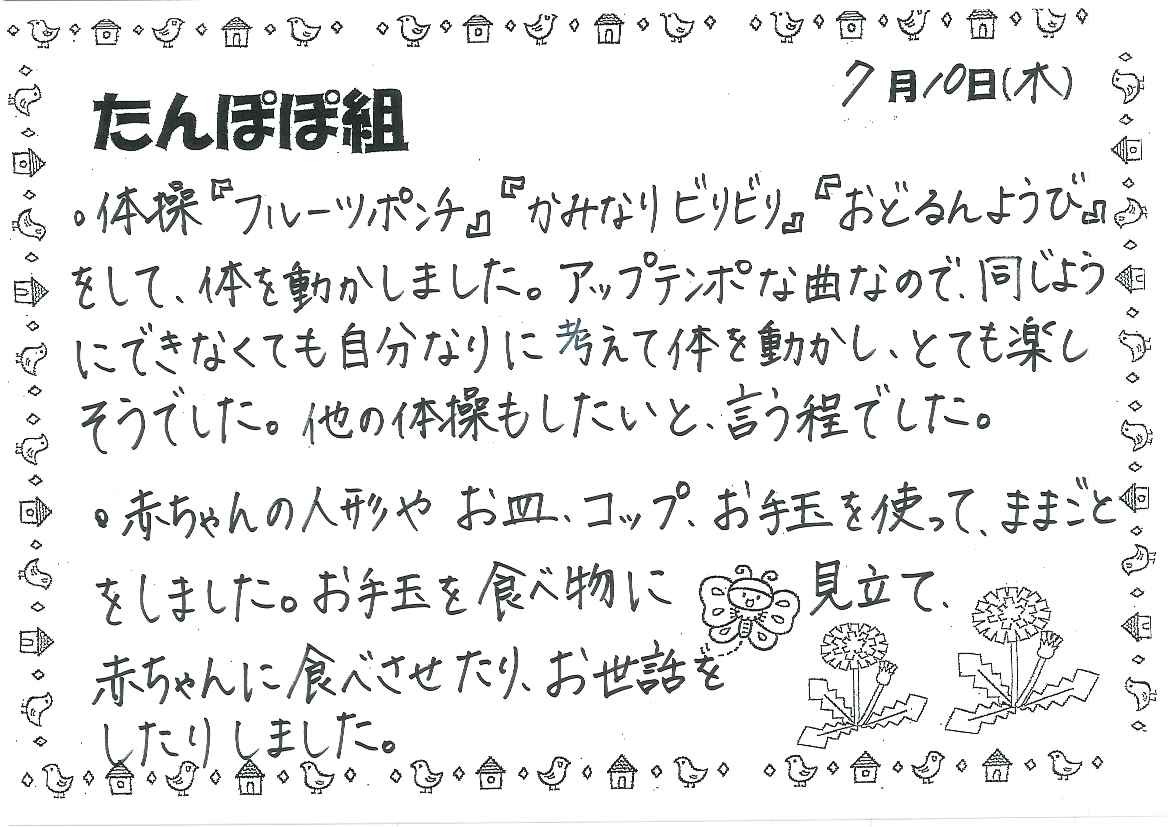 7月10日(木)
たんぽぽ組
。体操『フルーツポンチ』『かみなりビリビリ』『おどるんようび』
をして、体を動かしました。アップテンポな曲なので、同じよう
にできなくても自分なりに考えて体を動かし、とても楽し
そうでした。他の体操もしたいと、言う程でした。
。赤ちゃんの人形やお皿、コップ、お手玉を使って、ままごと
をしました。お手玉を食べ物に見立て、
赤ちゃんに食べさせたり、お世話を
したりしました。